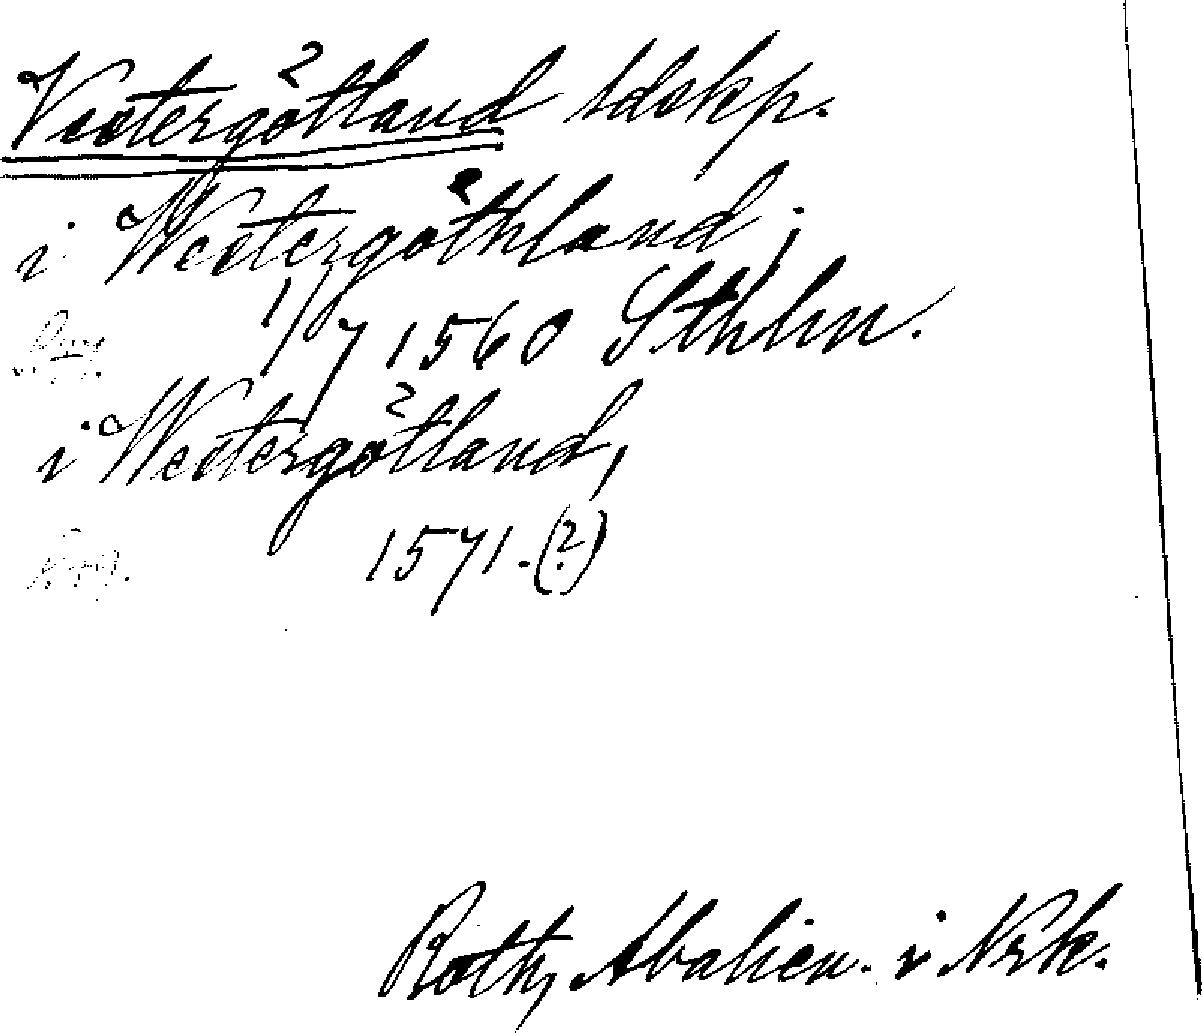 Vestergötland ldskp.
i Westergöthland;
1/7 1560 Sthlm.
i Westergötland,
1571. (?)
Roth, Abalien. i Nrk.